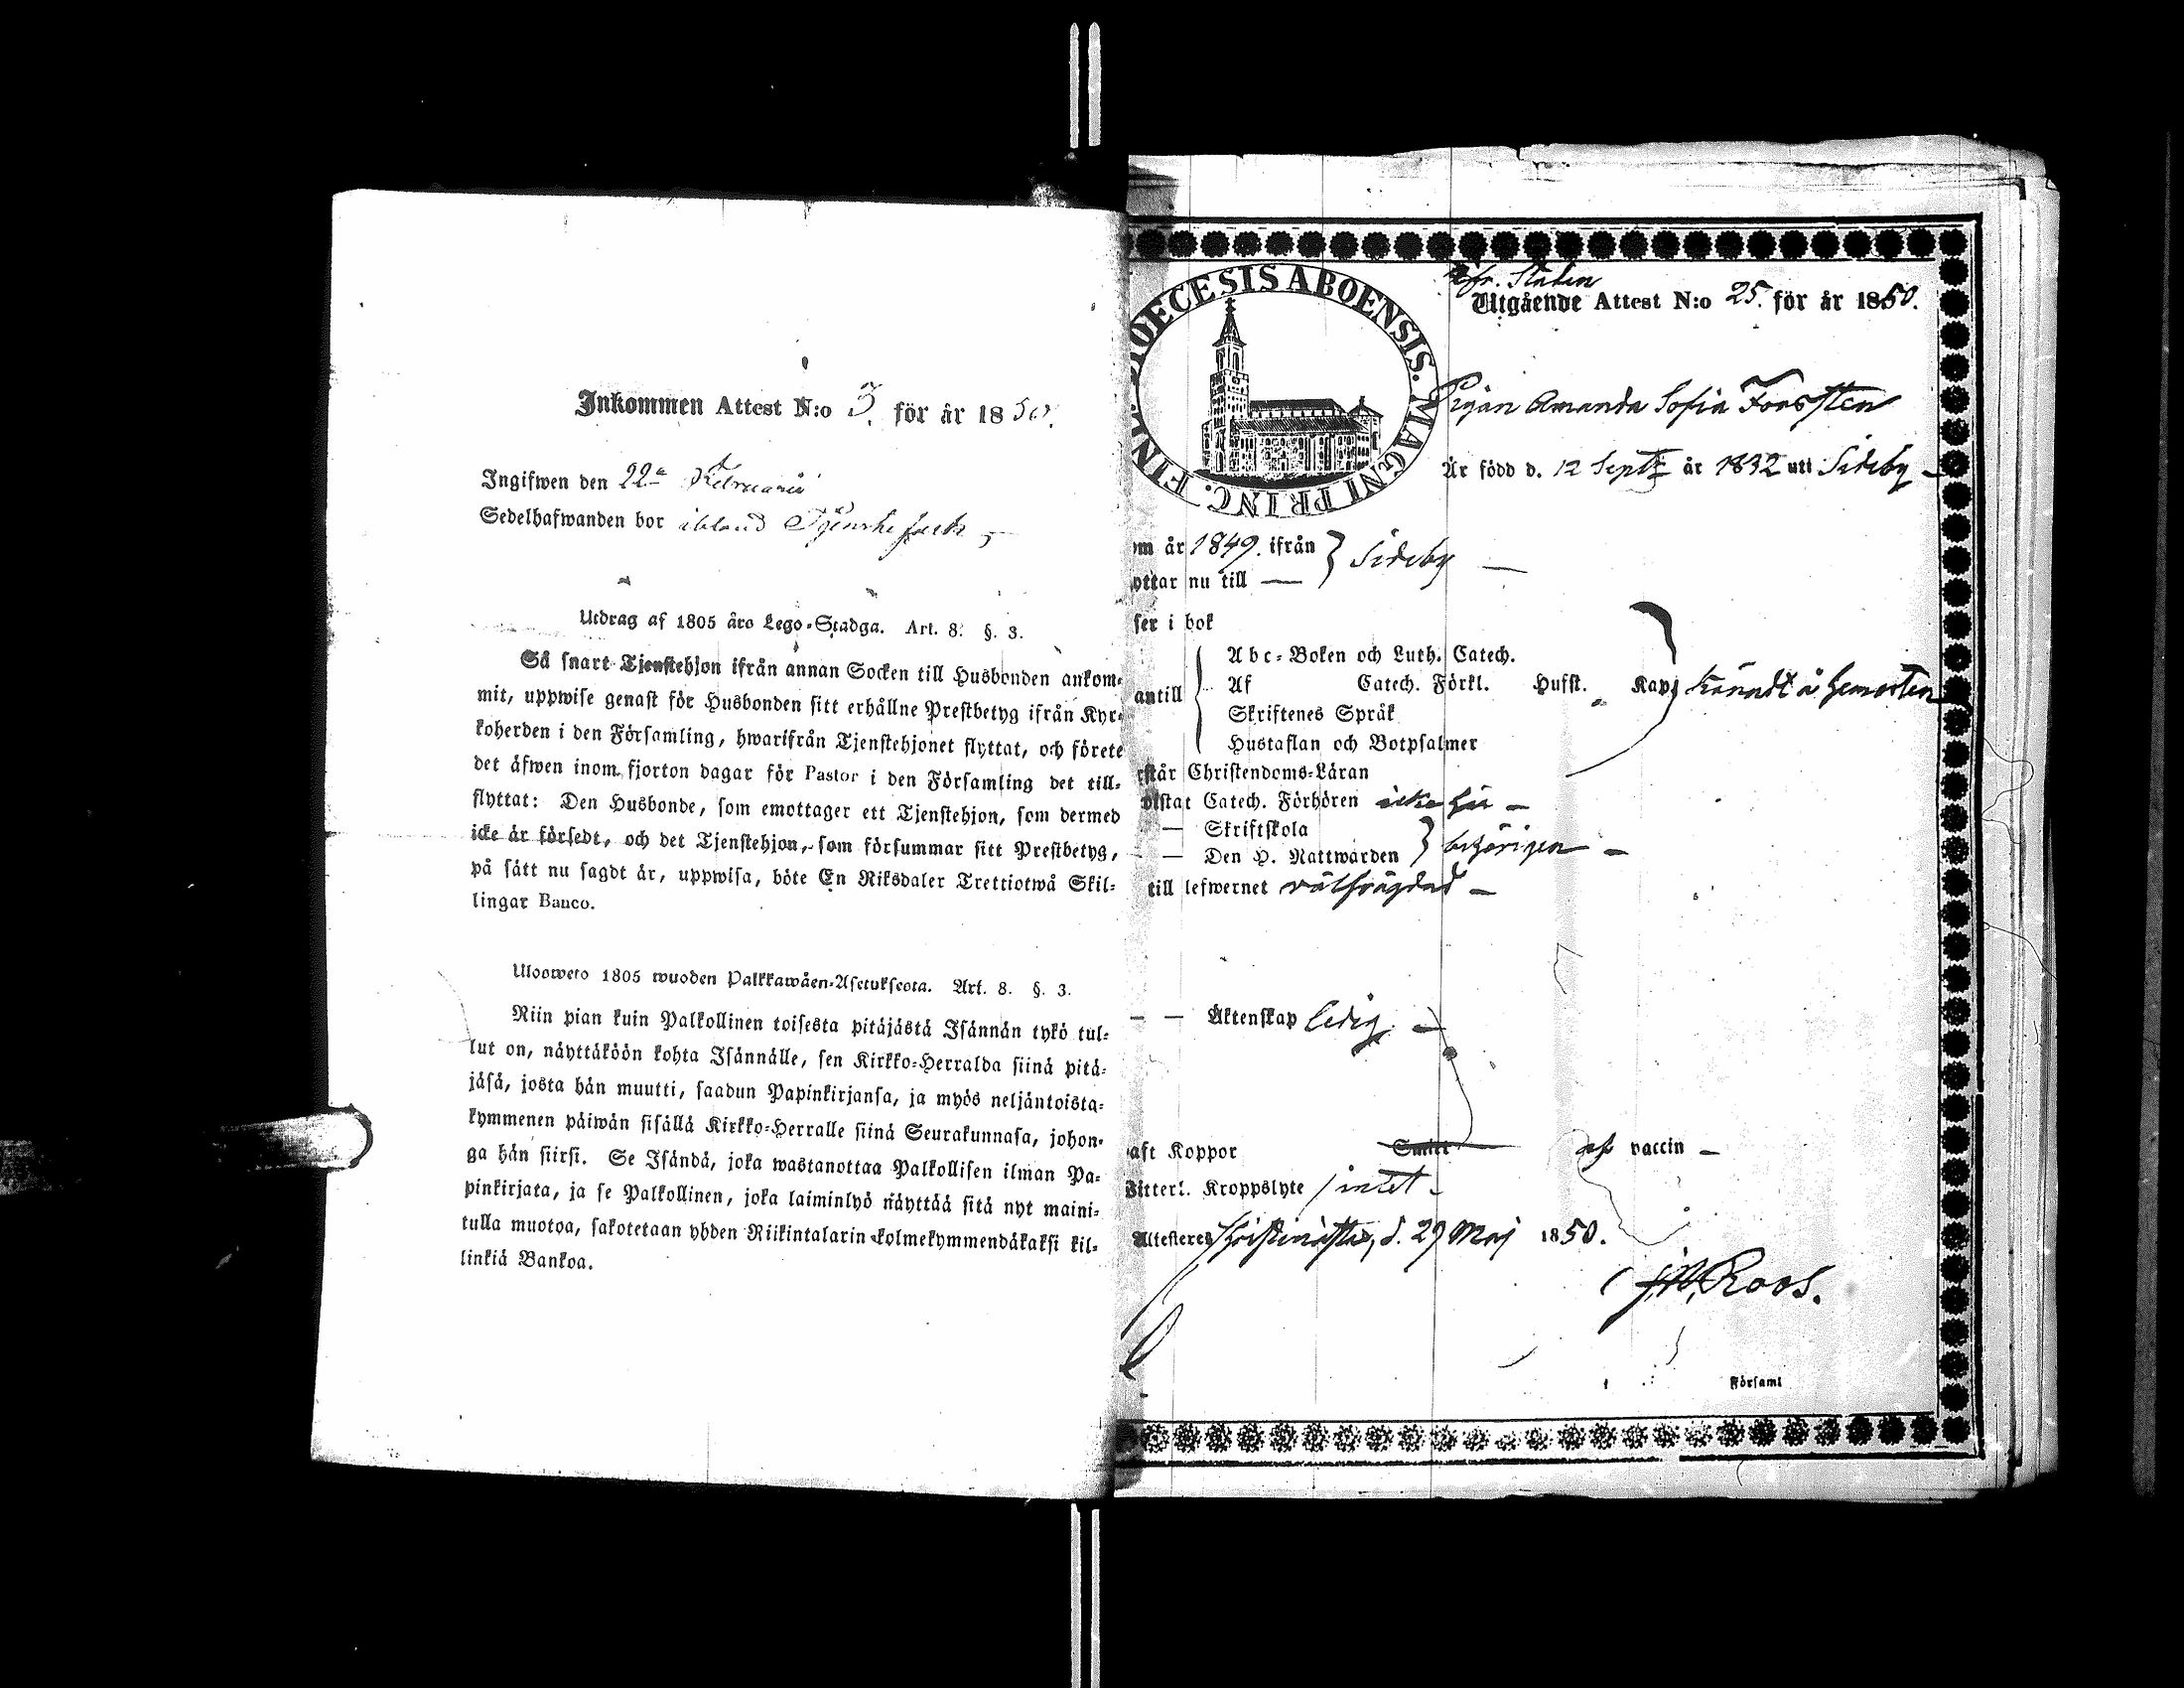 Inkommen Attest N:o 3. för år 1850.
Ingifwen den 22a Februarii
Sedelhafwanden bor ibland Tjenstefolk
Utdrag af 1805 års Lego-Stadga. Art. 8. §. 3.
Så snart Tjenstehjon ifrån annan Socken till Husbonden ankom-
mit, uppwise genast för Husbonden sitt erhållne Prestbetyg ifrån Kyr-
koherden i den Församling, hwarifrån Tjenstehjonet flyttat, och förete
det äfwen inom fjorton dagar för Pastor i den Församling det till-
flyttat: Den Husbonde, som emottager ett Tjenstehjon, som dermed
icke är försedt, och det Tjenstehjon, som försummar sitt Prestbetyg,
på sätt nu sagdt är, uppwisa, böte En Riksdaler Trettiotwå Skil-
lingar Banco.
Ulosweto 1805 wuoden Palkkawäen-Asetuksesta. Art. 8. §. 3.
Niin pian kuin Palkollinen toisesta pitäjästä Isännän tykö tul-
lut on, näyttäköön kohta Isännälle, sen Kirkko-Herralda siinä pitä-
jäsä, josta hän muutti, saadun Papinkirjansa, ja myös neljäntoista-
kymmenen päiwän sisällä Kirkko-Herralle siinä Seurakunnasa, johon-
ga hän siirsi. Se Isändä, joka wastanottaa Palkollisen ilman Pa-
pinkirjata, ja se Palkollinen, joka laiminlyö näyttää sitä nyt maini-
tulla muotoa, sakotetaan yhden Riikintalarin kolmekymmendäkaksi kil-
linkiä Bankoa.
DIOECESIS ABOENSIS. MAGNI PRINC. FINL.
fr. Staden
Utgående Attest N:o 25. för år 1850.
Pigan Amanda Sofia Forssten
Är född d. 12 Sept. år 1832 uti Sideby
om år 1849. ifrån } Sideby
ottar nu till
ser i bok
Abc-Boken och Luth. Catech.
antill Af Catech. Förkl. Husst. Kap.
Skriftenes Språk
Hustaflan och Botpsalmer
rstår Christendoms-Läran
wistat Catech. Förhören icke här
— Skriftskola
— Den H. Nattwarden } behörigen
till lefwernet välfrägdad
— — Äktenskap ledig.
aft Koppor Smitt af vaccin
Witterl. Kroppslyte intet
Attesterer, Christinestad, d. 29 Maj 1850.
J.W. Roos.
Församl